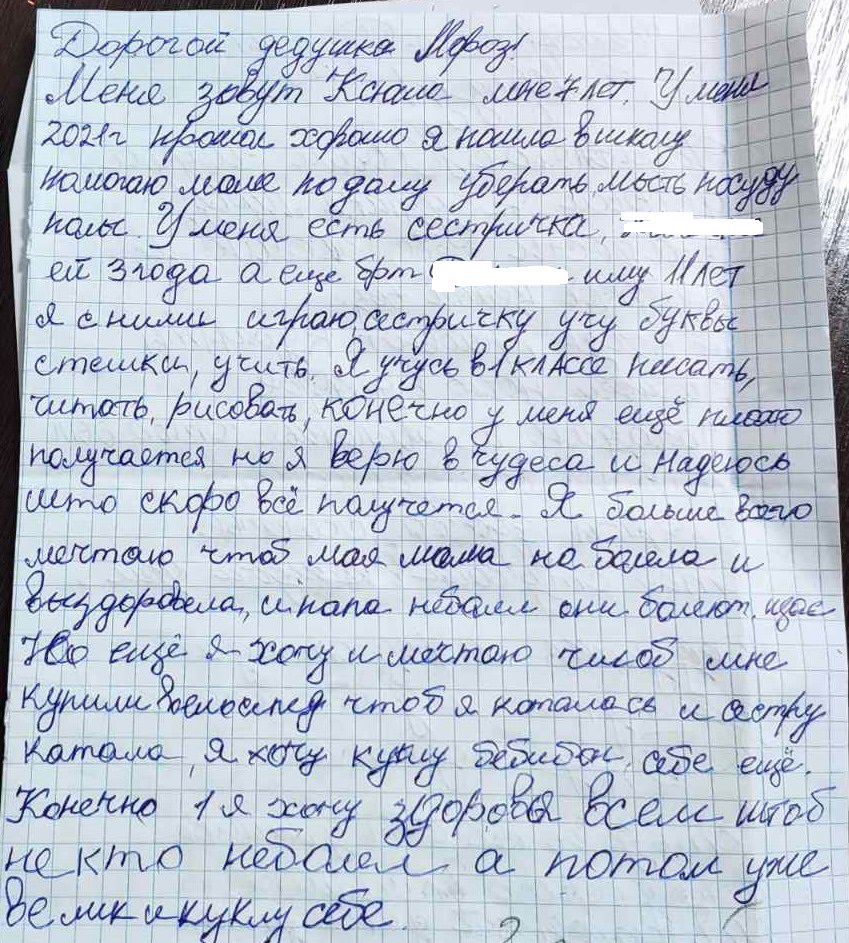 Дорогой дедушка Мороз!
Меня зовут Ксюша мне 7 лет. У меня
2021г прошол хорошо я пошла в школу
помогаю маме по даму уберать, мысть посуду
полы. У меня есть сестричка,
ей 3 года а еще брт иму 11 лет
я с ними играю, сестричку учу буквы
стешки, учить. Я учусь в 1 классе писать,
читать, рисовать, конечно у меня ещё плохо
получается но я верю в чудеса и надеюсь
што скоро всё получется. Я больше всего
мечтаю чтоб мая мама не болела и
выздоровела, и папа неболел они болеют щас
Но ещё я хочу и мечтаю чтоб мне
купили велосипед чтоб я каталась и сестру
катала, я хочу куклу бебибон себе ещё.
Конечно 1 я хочу здоровья всем штоб
некто неболел а потом уже
велик и куклу себе.